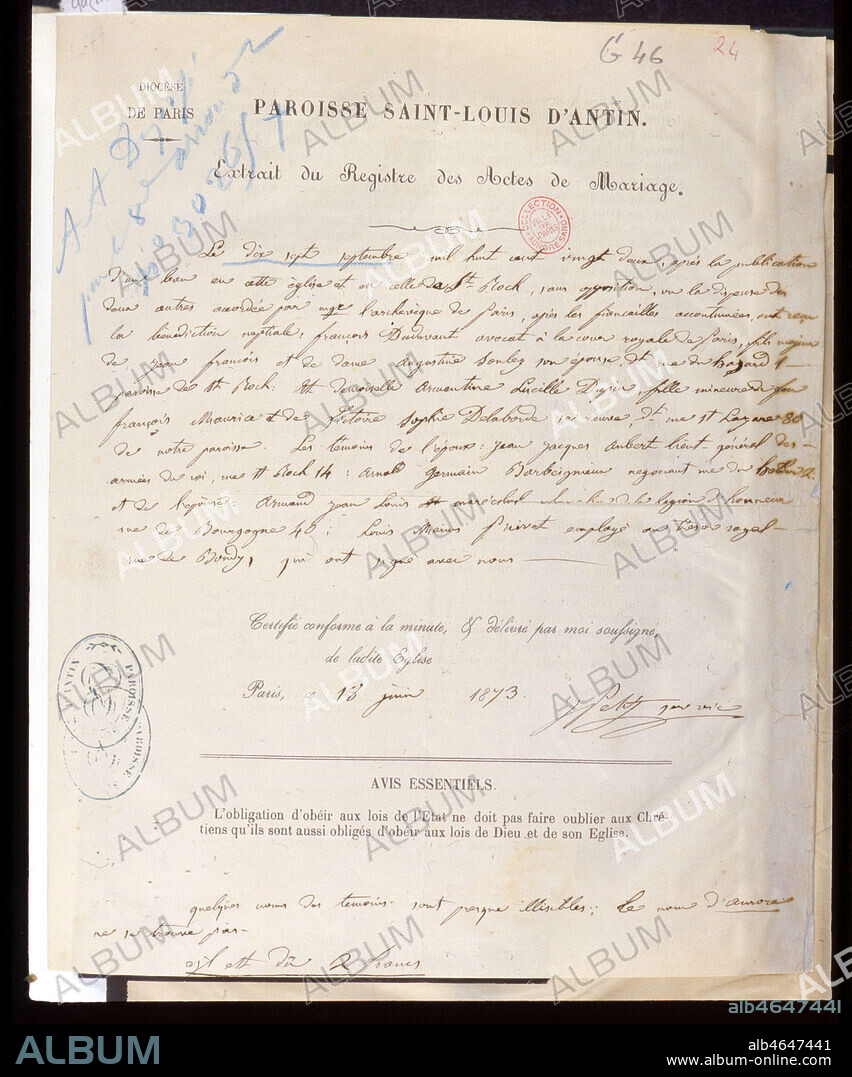 G 46
24
DIOCÈSE
DE PARIS
PAROISSE SAINT-LOUIS D'ANTIN.
Extrait du Registre des Actes de Mariage.
COLLECTION
VILLE DE PARIS
Le dix sept septembre mil huit cent vingt deux, après la publication
d'un ban en cette église et en celle de St Roch, sans opposition, vu la dispense des
deux autres accordée par mgr l'archevêque de Paris, après les fiançailles accoutumées, ont reçu
la bénédiction nuptiale: françois Dudevant avocat à la cour royale de Paris, fils majeur
de Jean françois et de dame augustine Soulez son épouse, dt rue du hazard 1
paroisse de St Roch: Et demoiselle Armentine Lucille Dupin, fille mineure de feu
françois Maurice et de Victoire Sophie Delaborde sa veuve, dt rue St Lazare 80
de notre paroisse. Les témoins de l'époux: Jean Jacques Aubert lieut-général des
armées du roi, rue St Roch 14: Arnold Germain Barbeignieux négociant rue du 2.
et de l'épouse: Armand Jean Louis maréchal de la légion d'honneur
rue de Bourgogne 40; Louis Marius Privat employé au trésor royal
rue de Bondy, qui ont signé avec nous
Certifié conforme à la minute, & délivré par moi soussigné,
de ladite Eglise
Paris, ce 13 juin 1873.
PAROISSE
AVIS ESSENTIELS.
L'obligation d'obéir aux lois de l'Etat ne doit pas faire oublier aux Chré-
tiens qu'ils sont aussi obligés d'obéir aux lois de Dieu et de son Eglise.
quelques noms des temoins sont presque illisibles; le nom d'aurore
ne se trouve pas-
il est dû 2 francs
alb4647441
ALBUM
alb4647441
www.album-online.com